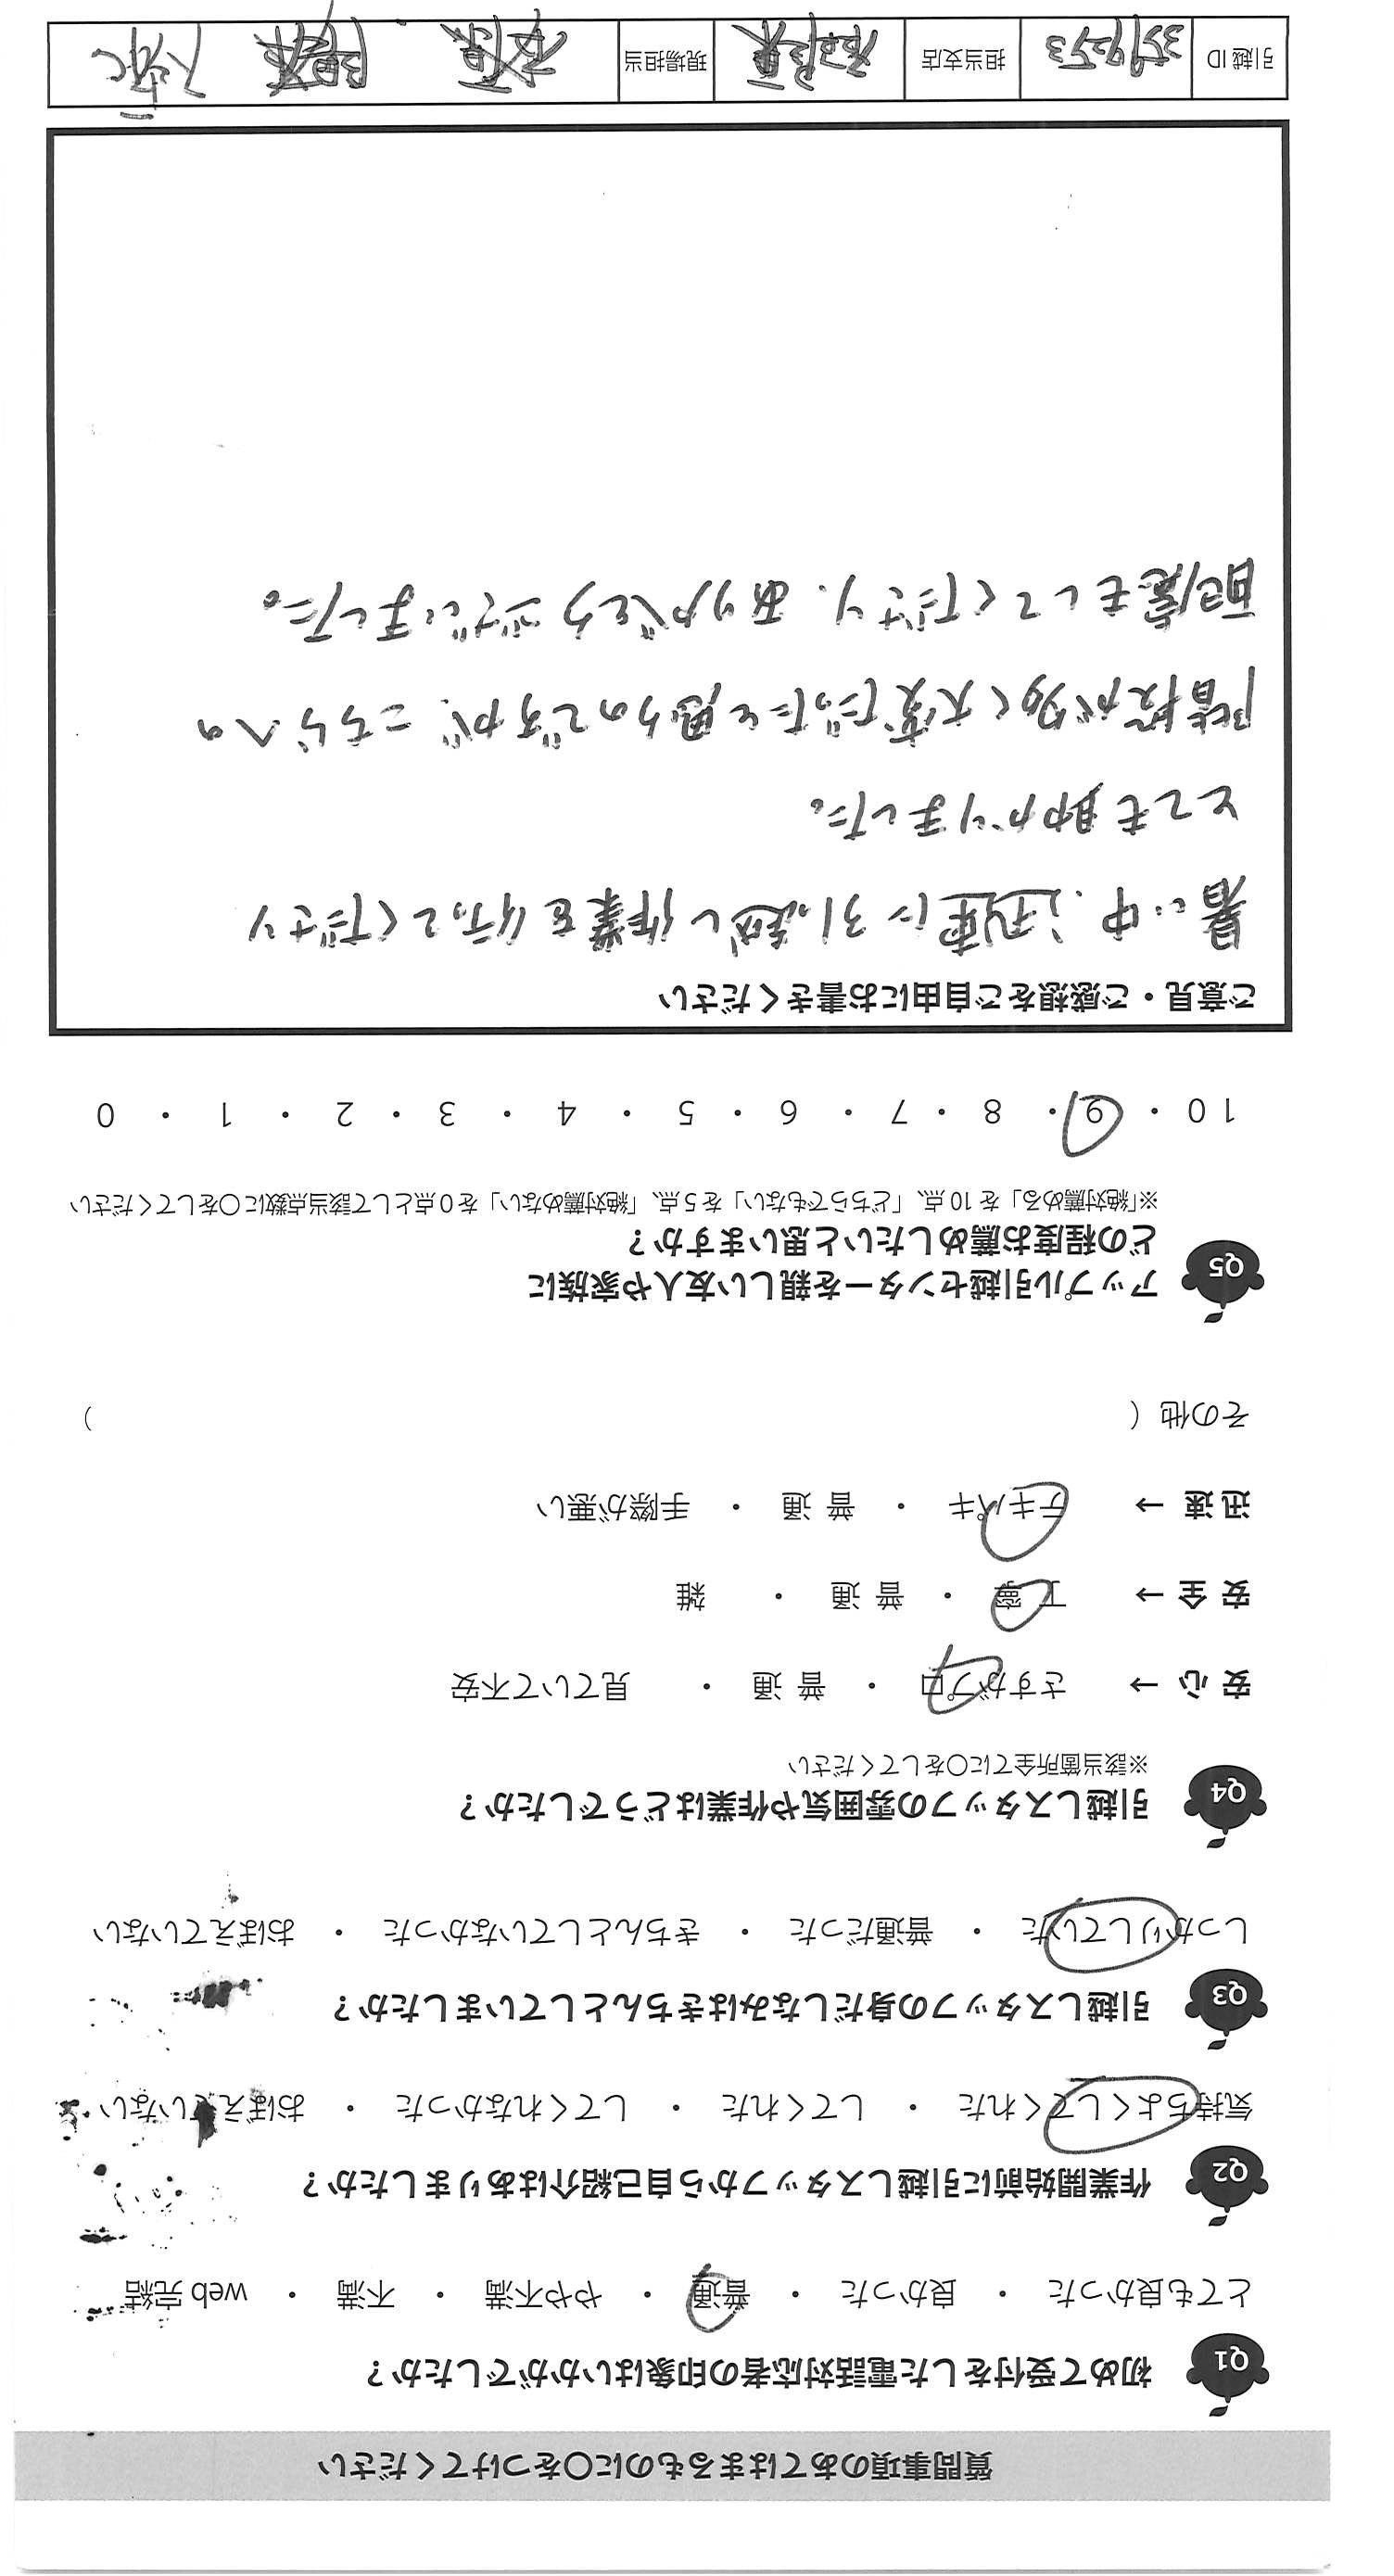 質問事項のあてはまるものに〇をつけてください
Q1 初めて受付をした電話対応者の印象はいかがでしたか？
とても良かった ・ 良かった ・ 普通 ・ やや不満 ・ 不満 ・ web 完結
Q2 作業開始前に引越しスタッフから自己紹介はありましたか？
気持ちよくしてくれた ・ してくれた ・ してくれなかった ・ おぼえていない
Q3 引越しスタッフの身だしなみはきちんとしていましたか？
しっかりしていた ・ 普通だった ・ きちんとしていなかった ・ おぼえていない
Q4 引越しスタッフの雰囲気や作業はどうでしたか？
※該当箇所全てに〇をしてください
安 心 → さすがプロ ・ 普 通 ・ 見ていて不安
安 全 → 丁 寧 ・ 普 通 ・ 雑
迅 速 → テキパキ ・ 普 通 ・ 手際が悪い
その他（ ）
Q5 アップル引越センターを親しい友人や家族に
どの程度お薦めしたいと思いますか？
※「絶対薦める」を 10 点、「どちらでもない」を 5 点、「絶対薦めない」を 0 点として該当点数に〇をしてください
10 ・ 9 ・ 8 ・ 7 ・ 6 ・ 5 ・ 4 ・ 3 ・ 2 ・ 1 ・ 0
ご意見・ご感想をご自由にお書きください
暑い中、迅速に引っ越し作業を行ってくださり
とても助かりました。
階段が多く大変だったと思うのですが、こちらへの
配慮もしてくださり、ありがとうございました。
引越 ID 3592253 担当支店 現場担当